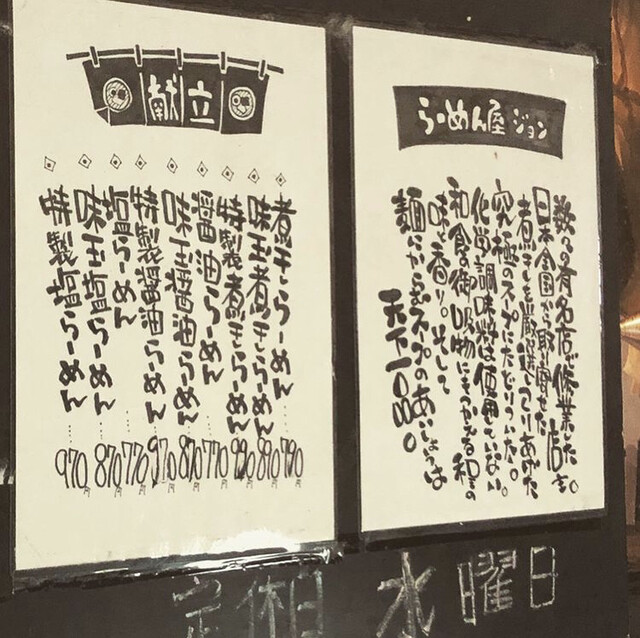 らーめん屋 ジョン
数々の有名店で修業した店主。
日本全国から取り寄せた
煮干しを厳選してつくりあげた
究極のスープにたどりついた。
化学調味料は使用していない。
和食の御吸物にもつかえる和の
味と香り。そして
麺にからむスープのあいしょうは
天下一品。
献立
煮干しらーめん……790円
味玉煮干しらーめん……890円
特製煮干しらーめん……990円
醤油らーめん……770円
味玉醤油らーめん……870円
特製醤油らーめん……970円
塩らーめん……770円
味玉塩らーめん……870円
特製塩らーめん……970円
定休日 水曜日